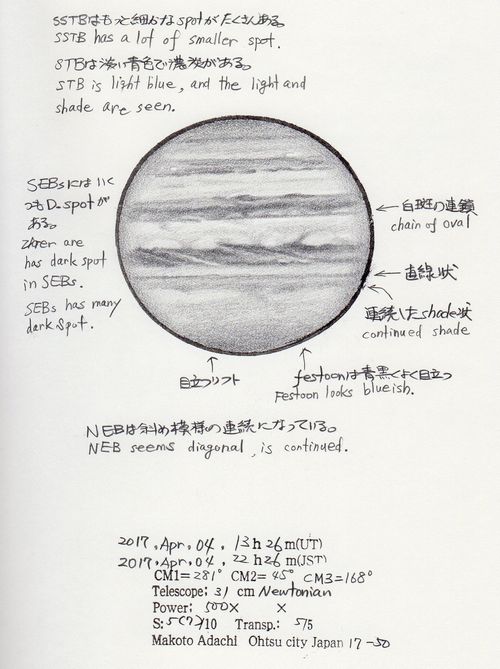 SSTBはもっと細かなspotがたくさんある。
SSTB has a lot of smaller spot.
STBは淡い青色で濃淡がある。
STB is light blue, and the light and
shade are seen.
SEBsにはいく
つもD.spotが
ある。
are
has dark spot
in SEBs.
SEBs has many
dark spot.
白斑の連鎖
chain of oval
直線状
連続したshade状
continued shade
目立つリフト
festoonは青黒くよく目立つ
Festoon looks blueish.
NEBは斜め模様の連続になっている。
NEB seems diagonal, is continued.
2017, Apr, 04, 13 h 26 m(UT)
2017, Apr, 04, 22 h 26 m(JST)
CM1= 281° CM2= 45° CM3=168°
Telescope: 31 cm Newtonian
Power: 500× ×
S: 5(7)/10 Transp.: 5/5
Makoto Adachi Ohtsu city Japan 17-50